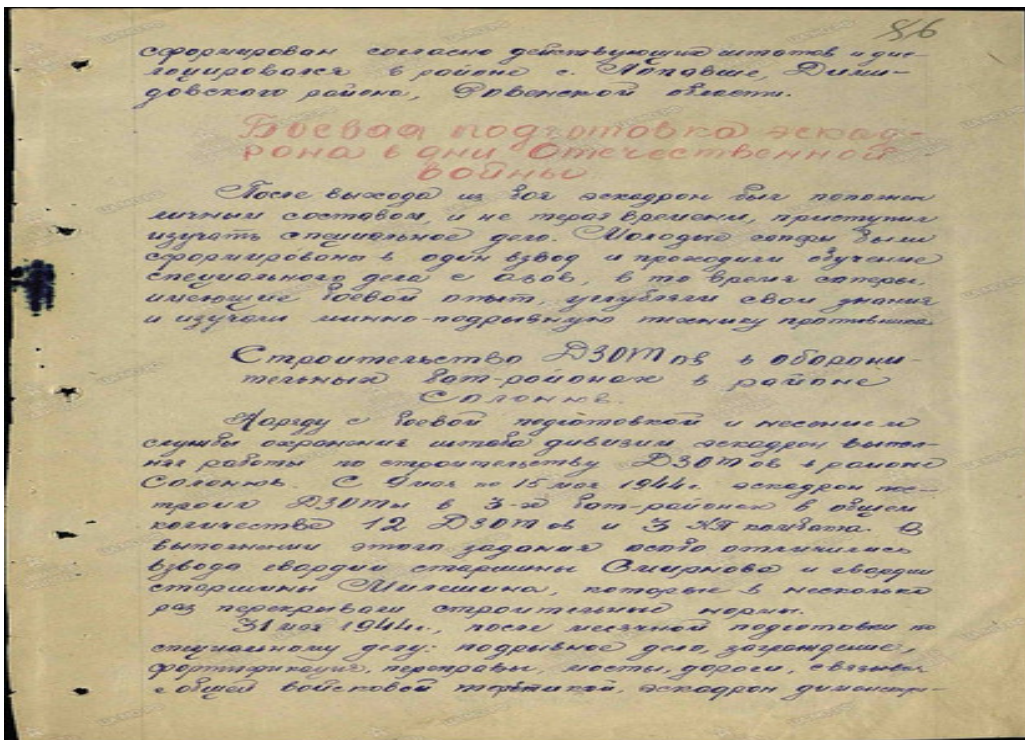 86
сформирован согласно действующих штатов и дис-
лоцировался в районе с. Лопавше, Деми-
довского района, Ровенской области.
Боевая подготовка эскад-
рона в дни Отечественной
войны
После выхода из боя эскадрон был пополнен
личным составом, и не теряя времени, приступил
изучать специальное дело. Молодые сапёры были
сформированы в один взвод и проходили обучение
специального дела с азов, в то время сапёры,
имеющие боевой опыт, углубляли свои знания
и изучали минно-подрывную технику противника.
Строительство ДЗОТов в оборони-
тельных бат-районах в районе
Солонюв.
Наряду с боевой подготовкой и несением
службы охранения штаба дивизии эскадрон выпол-
нял работы по строительству ДЗОТов в районе
Солонюв. С 9 мая по 15 мая 1944г. эскадрон пос-
троил ДЗОТы в 3-х бат-районах в общем
количестве 12 ДЗОТов и 3 КП комбата. В
выполнении этого задания особо отличились
взвода гвардии старшины Смирнова и гвардии
старшины Милешина, которые в несколько
раз перекрывали строительные нормы.
31 мая 1944г., после месячной подготовки по
специальному делу: подрывное дело, заграждение,
фортификация, переправы, мосты, дороги, связывая
с общей войсковой тактикой, эскадрон